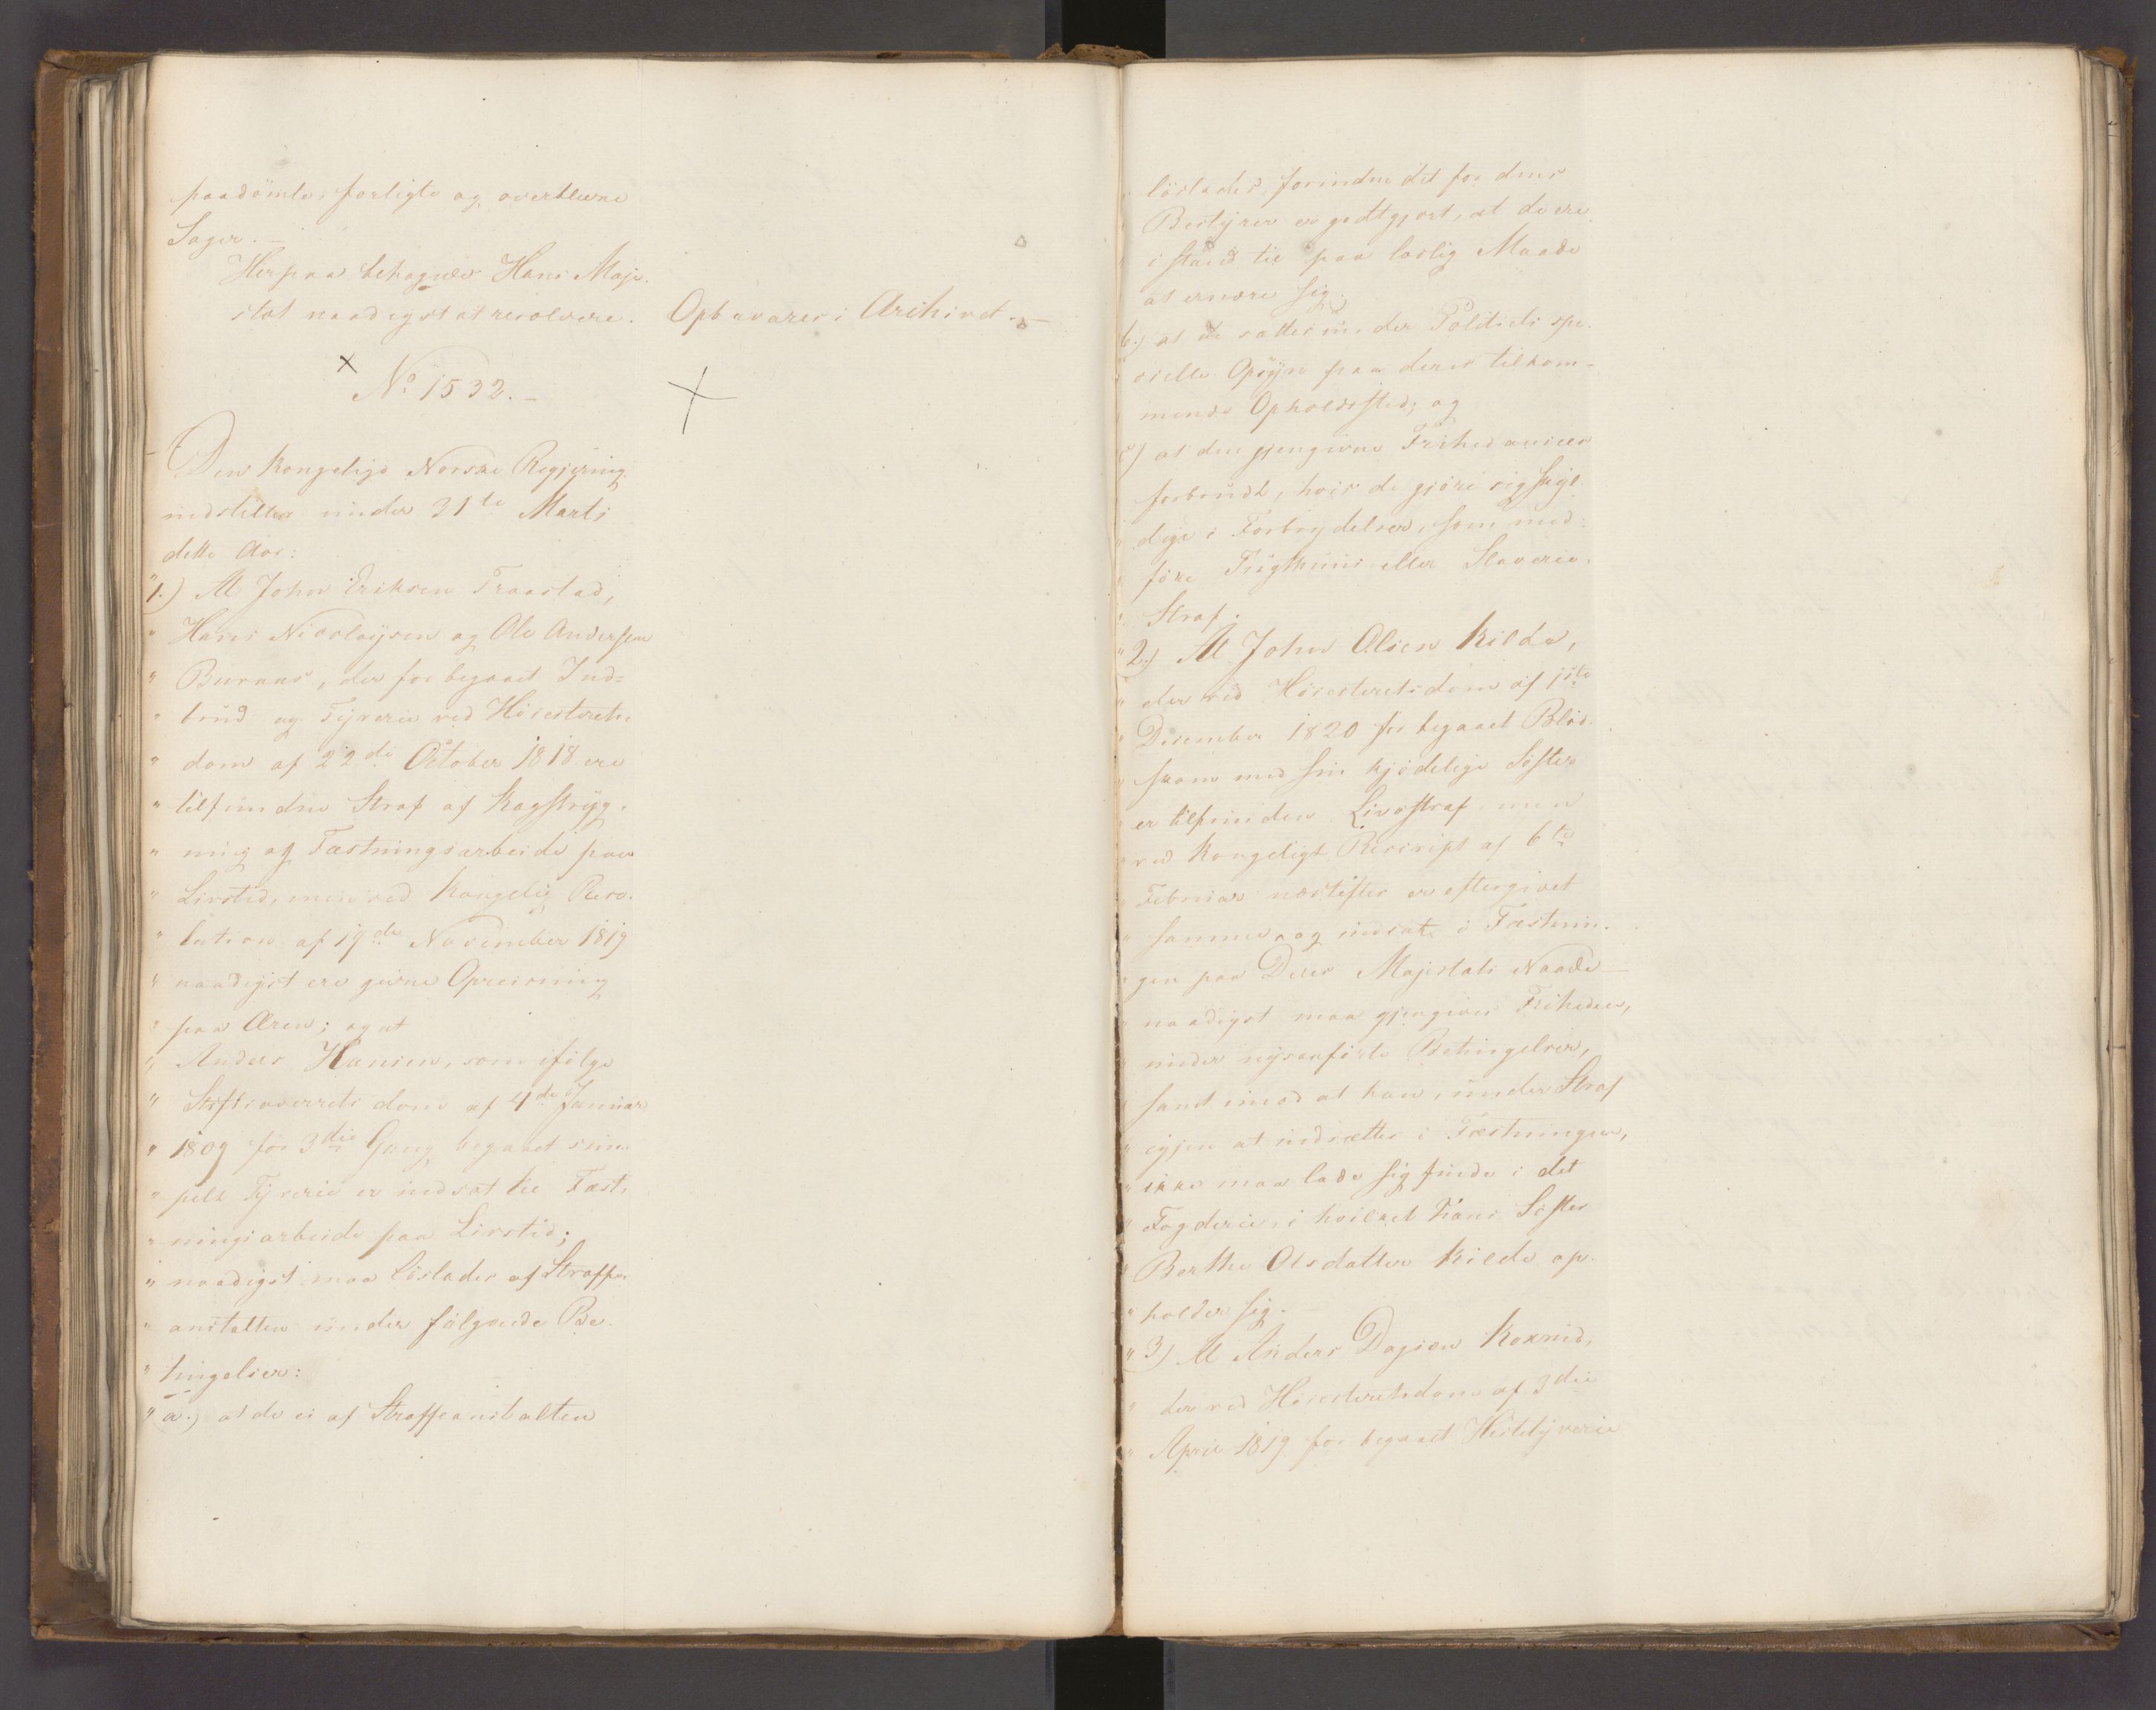 paadömte, forligte og overblevne
Sager. —
Herpaa behagede Hans Maje-
stæt naadigst at resolvere.
Opbevares i Archivet. —
No 1532. —
Den Kongelige Norske Regjering
indstiller under 31te Marts
dette Aar:
1.) At John Eriksen Traastad,
" Hans Nicolaysen og Ole Anderssen
" Buraas, der for begaaet Ind=
" brud og Tyverie ved Höiesterets
" dom af 22de October 1818 ere
" tilfundne Straf af Kagstryg-
" ning og Fæstningsarbeide paa
" Livstid, men ved Kongelig Reso-
" lution af 19de November 1819
" naadigst ere givne Opreisning
" paa Æren; og at
" Anders Hansen, som ifölge
" Stiftsoverrets dom af 4de Januar
" 1809 for 3die Gang begaaet sim-
" pelt Tyverie er indsat til Fæst-
" ningsarbeide paa Livstid;
" naadigst maa löslades af Straffe-
" anstalten under fölgende Be-
" tingelser:
" a.) at de ei af Straffeanstalten
" löslades, forinden det for dens
" Bestyrer er godtgjort, at de ere
" i stand til paa lovlig Maade
" at ernære sig.
b.) at de sættes under Politiets spe-
" cielle Opsyn paa deres tilkom-
" mende Opholdssted; og
c.) at den gjengivne Frihed ansees
" forbrudt, hvis de gjöre sig skyl-
" dige i Forbrydelser, som med-
" före Tugthuus eller Slaverie-
" Straf.
" 2.) At John Olsen Kilde,
" der ved Höiesteretsdom af 1ste
" December 1820 for begaaet Blod-
" skam med sin kjödelige Söster
" er tilfunden Livsstraf, men
" ved Kongeligt Rescript af 6te
" Februar næstefter er eftergivet
" samme, og indsat i Fæstnin-
" gen paa Deres Majestæts Naade —
" naadigst maa gjengives Friheden,
" under nysanförte Betingelser,
" samt imod at han, under Straf
" igjen at indsættes i Fæstningen,
" ikke maa lade sig finde i det
" Fogderie, i hvilket hans Söster
" Berthe Olsdatter Kilde op-
" holder sig. —
" 3.) At Anders Dagsen
" der ved Höiesteretsdom af 3die
" April 1819 for begaaet Hestetyverie